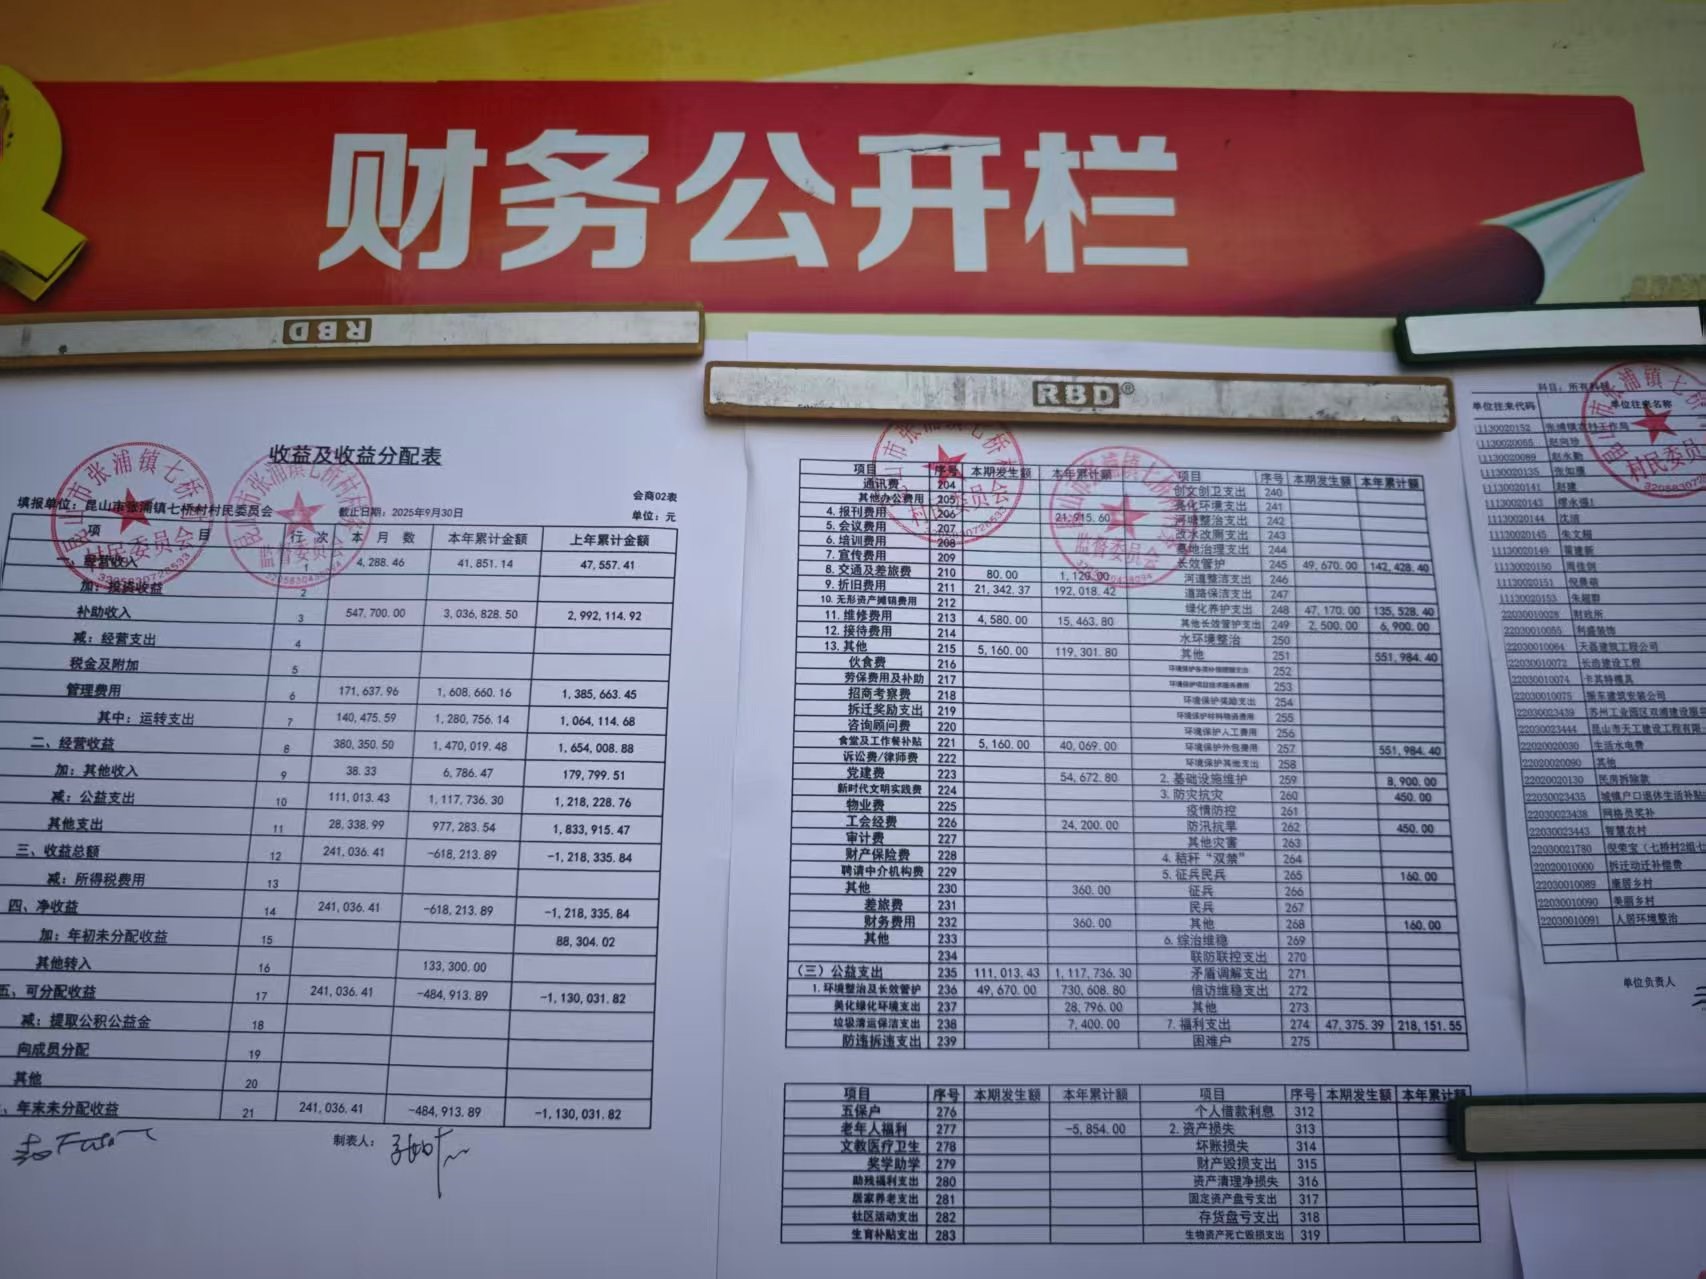 财务公开栏
RBD
RBD®
收益及收益分配表
会商02表
填报单位：昆山市张浦镇七桥村村民委员会 截止日期：2025年9月30日 单位：元
项 目 行 次 本 月 数 本年累计金额 上年累计金额
一、经营收入 1 4,288.46 41,851.14 47,557.41
加：投资收益 2
补助收入 3 547,700.00 3,036,828.50 2,992,114.92
减：经营支出 4
税金及附加 5
管理费用 6 171,637.96 1,608,660.16 1,385,663.45
其中：运转支出 7 140,475.59 1,280,756.14 1,064,114.68
二、经营收益 8 380,350.50 1,470,019.48 1,654,008.88
加：其他收入 9 38.33 6,786.47 179,799.51
减：公益支出 10 111,013.43 1,117,736.30 1,218,228.76
其他支出 11 28,338.99 977,283.54 1,833,915.47
三、收益总额 12 241,036.41 -618,213.89 -1,218,335.84
减：所得税费用 13
四、净收益 14 241,036.41 -618,213.89 -1,218,335.84
加：年初未分配收益 15 88,304.02
其他转入 16 133,300.00
五、可分配收益 17 241,036.41 -484,913.89 -1,130,031.82
减：提取公积公益金 18
向成员分配 19
其他 20
、年末未分配收益 21 241,036.41 -484,913.89 -1,130,031.82
制表人：
项目 序号 本期发生额 本年累计额 项目 序号 本期发生额 本年累计额
通讯费 204 创文创卫支出 240
其他办公费用 205 亮化环境支出 241
4. 报刊费用 206 21,915.60 河塘整治支出 242
5. 会议费用 207 改水改厕支出 243
6. 培训费用 208 墓地治理支出 244
7. 宣传费用 209 长效管护 245 49,670.00 142,428.40
8. 交通及差旅费 210 80.00 1,120.00 河道整洁支出 246
9. 折旧费用 211 21,342.37 192,018.42 道路保洁支出 247
10. 无形资产摊销费用 212 绿化养护支出 248 47,170.00 135,528.40
11. 维修费用 213 4,580.00 15,463.80 其他长效管护支出 249 2,500.00 6,900.00
12. 接待费用 214 水环境整治 250
13. 其他 215 5,160.00 119,301.80 其他 251 551,984.40
伙食费 216 252
劳保费用及补助 217 253
招商考察费 218 环境保护奖励支出 254
拆迁奖励支出 219 环境保护材料物资费用 255
咨询顾问费 220 环境保护人工费用 256
食堂及工作餐补贴 221 5,160.00 40,069.00 环境保护外包费用 257 551,984.40
诉讼费/律师费 222 环境保护其他支出 258
党建费 223 54,672.80 2. 基础设施维护 259 8,900.00
新时代文明实践费 224 3. 防灾抗灾 260 450.00
物业费 225 疫情防控 261
工会经费 226 24,200.00 防汛抗旱 262 450.00
审计费 227 其他灾害 263
财产保险费 228 4. 秸秆“双禁” 264
聘请中介机构费 229 5. 征兵民兵 265 160.00
其他 230 360.00 征兵 266
差旅费 231 民兵 267
财务费用 232 360.00 其他 268 160.00
其他 233 6. 综治维稳 269
234 联防联控支出 270
（三）公益支出 235 111,013.43 1,117,736.30 矛盾调解支出 271
1. 环境整治及长效管护 236 49,670.00 730,608.80 信访维稳支出 272
美化绿化环境支出 237 28,796.00 其他 273
垃圾清运保洁支出 238 7,400.00 7. 福利支出 274 47,375.39 218,151.55
防违拆违支出 239 困难户 275
项目 序号 本期发生额 本年累计额 项目 序号 本期发生额 本年累计额
五保户 276 个人借款利息 312
老年人福利 277 -5,854.00 2. 资产损失 313
文教医疗卫生 278 坏账损失 314
奖学助学 279 财产毁损支出 315
助残福利支出 280 资产清理净损失 316
居家养老支出 281 固定资产盘亏支出 317
社区活动支出 282 存货盘亏支出 318
生育补贴支出 283 生物资产死亡毁损支出 319
科目：所有科目
单位往来代码 单位往来名称
11130020152 张浦镇农村工作局
11130020055
11130020089 赵永勤
11130020135
11130020141 赵建
11130020143
11130020144 沈洁
11130020145 朱文翔
11130020149
11130020150 周佳剑
11130020151
11130020153 朱超群
22030010028 财政所
22030010055 利盛装饰
22030010064 天磊建筑工程公司
22030010072 长浩建设工程
22030010074 卡其特模具
22030010075 振东建筑安装公司
22030023439 苏州工业园区双浦建设服
22030023444 昆山市天工建设工程有限
22020020030 生活水电费
22020020090 其他
22020020130 民房拆除款
22030023435 城镇户口退休生活补贴
22030023438 网格员奖补
22030023443 智慧农村
22030021780 倪荣宝（七桥村2组七
22020010000 拆迁动迁补偿费
22030010089 康居乡村
22030010090 美丽乡村
22030010091 人居环境整治
单位负责人